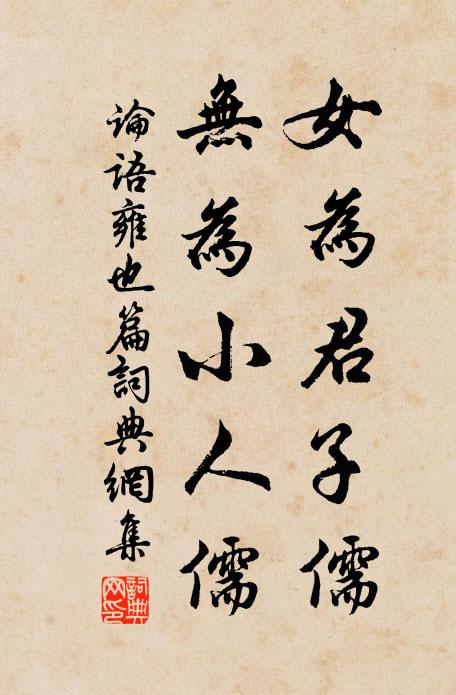 女為君子儒
無為小人儒
論語雍也篇詞典網集
詞典網印